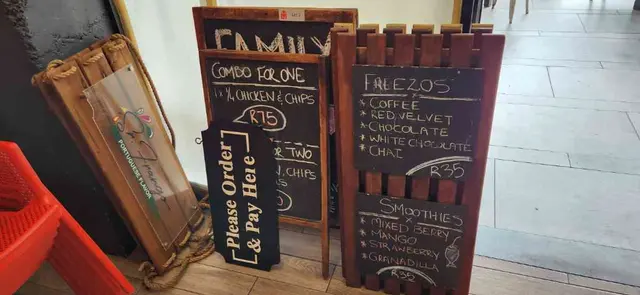 FAMILY
COMBO FOR ONE
1 x 1/4 CHICKEN & CHIPS
R75
FOR TWO
CHIPS
Please Order
& Pay Here
PORTUGUESE FLAVOR
FREEZOS
* COFFEE
* RED VELVET
* CHOCOLATE
* WHITE CHOCOLATE
* CHAI
R35
SMOOTHIES
* MIXED BERRY
* MANGO
* STRAWBERRY
* GRANADILLA
R35